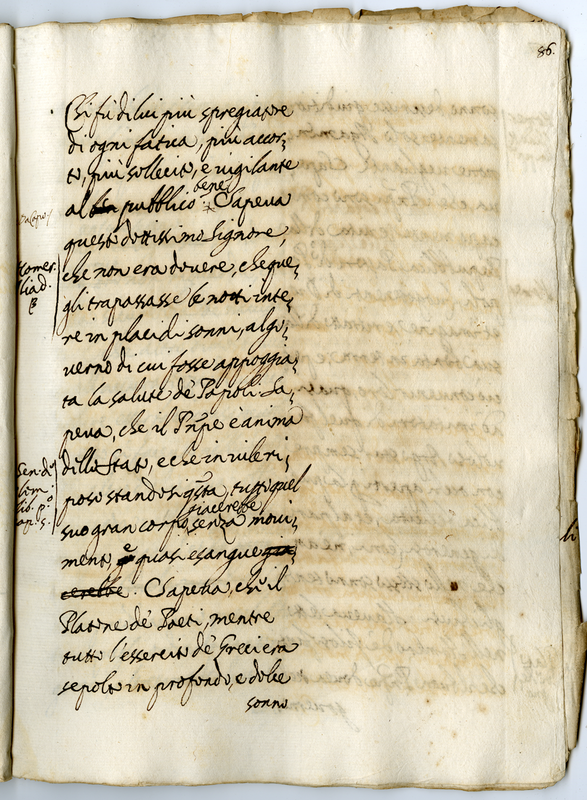 86.
Chi fù di lui più spregiatore
di ogni fatica, più accor-
to, più sollecito, e vigilante
al ben pubblico bene. Sapeva
questo dottissimo Signore,
che non era dovere, che que-
gli trapassasse le notti inte-
re in placidi sonni, al go-
verno di cui fosse appoggia-
ta la salute de' Popoli. Sa-
peva, che il Prñpe è anima
dello Stato, e che in vile ri-
poso standosi q̃sta, tutto quel
suo gran corpo giacerebbe senza movi-
mento, e quasi esangue gia-
cerebbe. Sapeva, ch'il
Platone de' Poeti, mentre
tutto l'essercito de' Greci era
sepolto in profondo, e dolce
sonno
Homer.
Iliad.
Sen. de
Clem.
lib. p.º